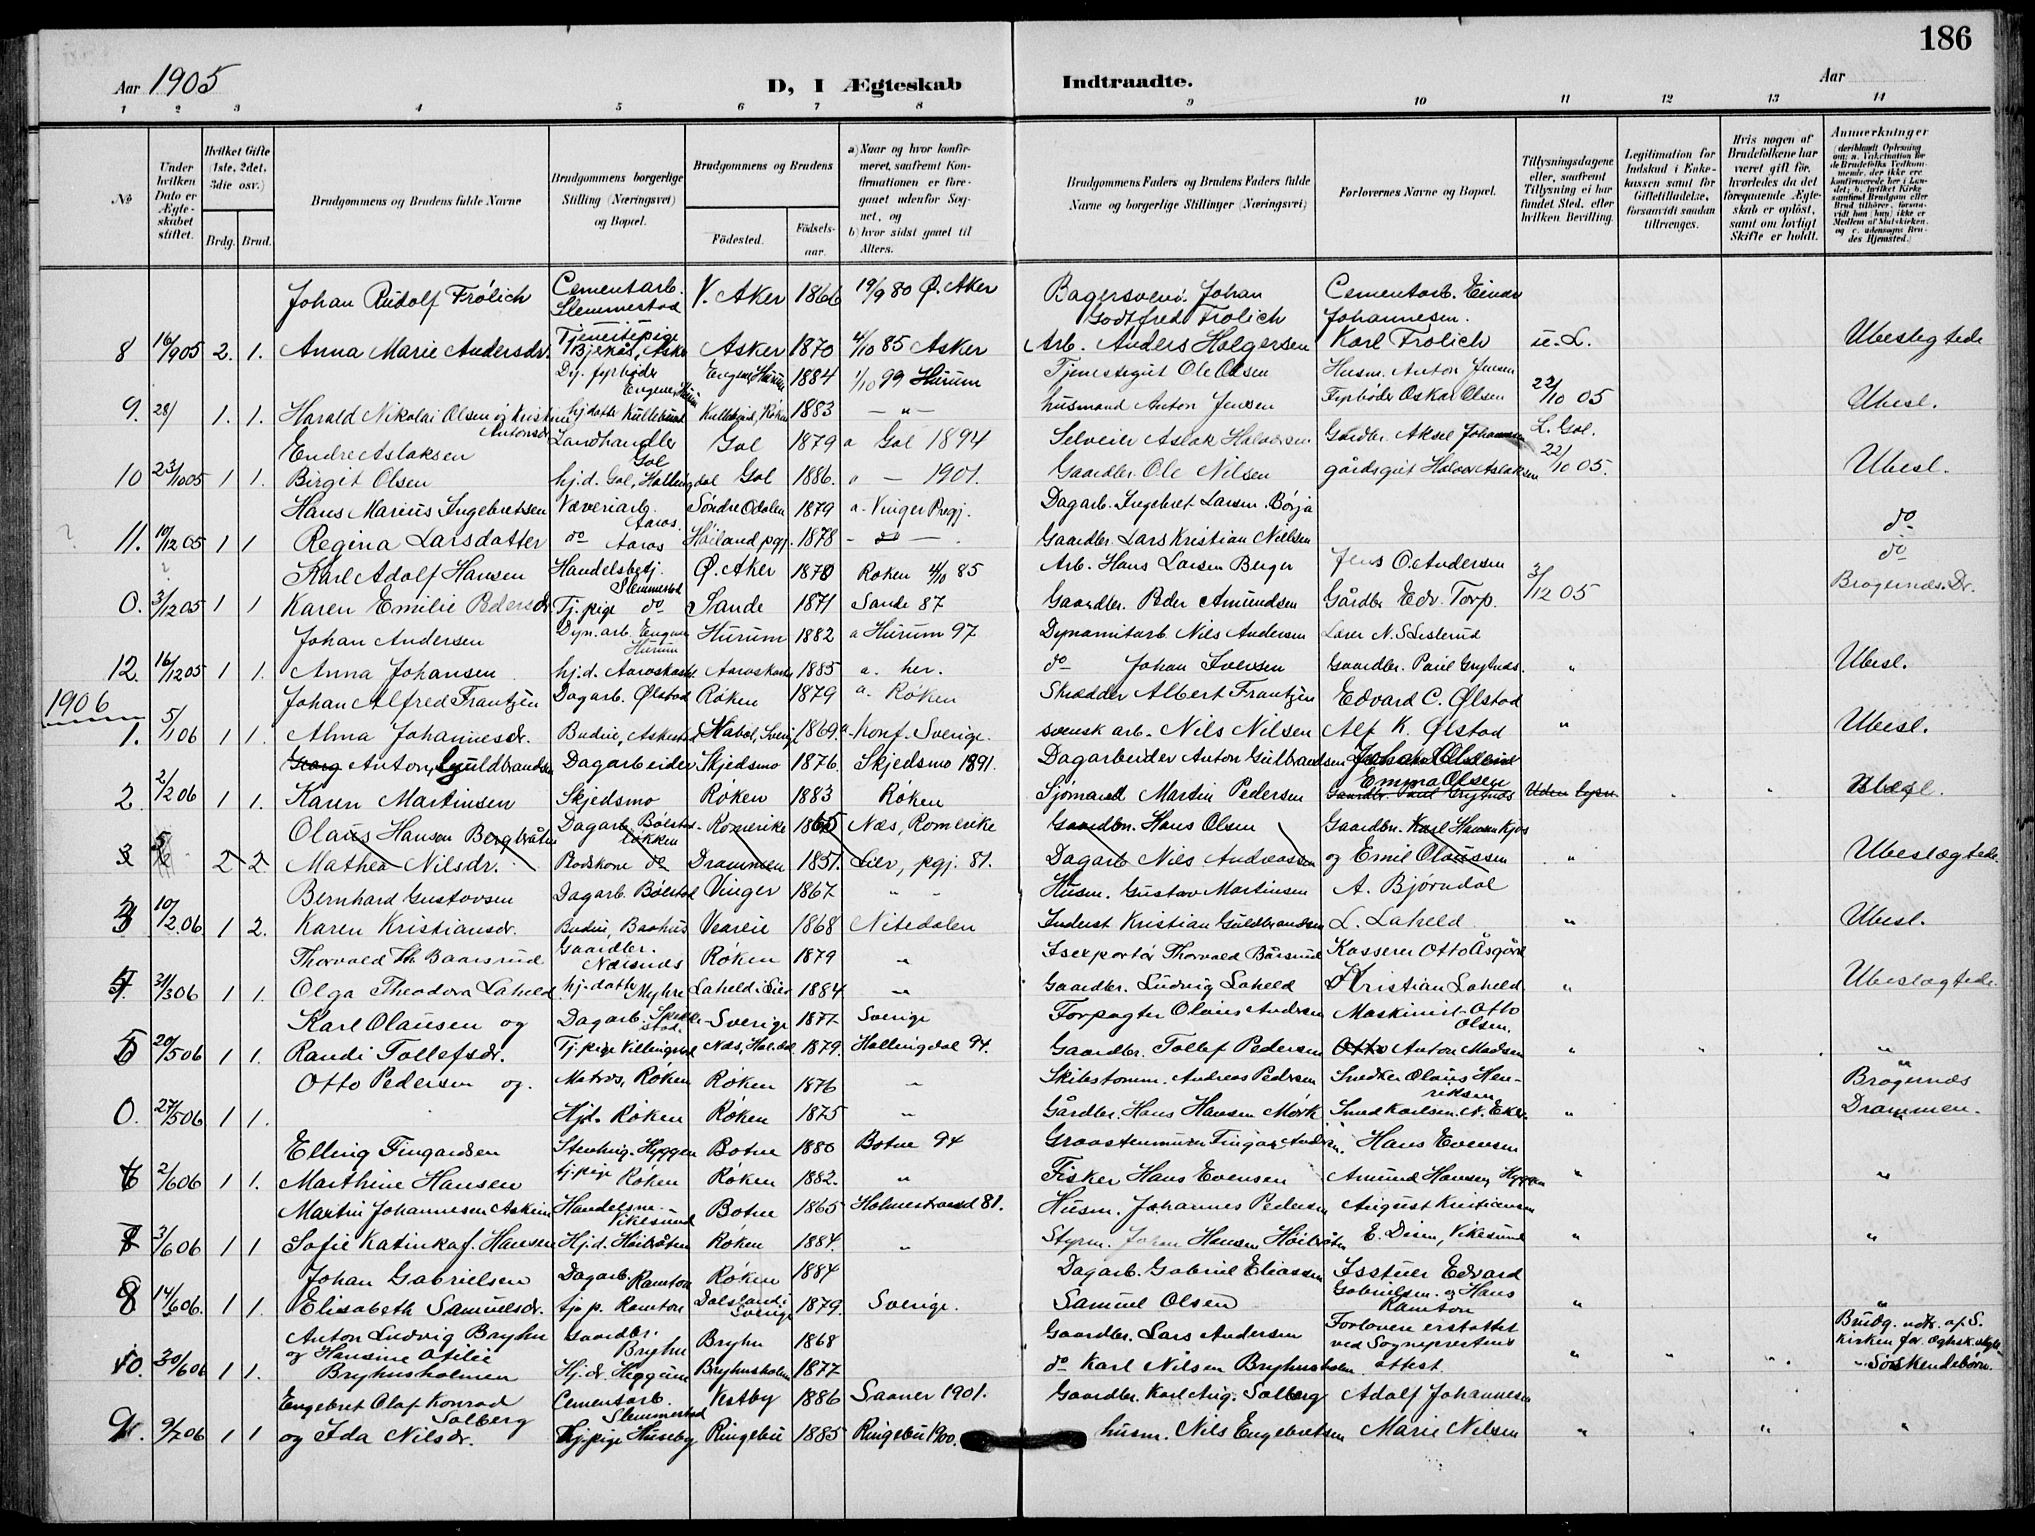 186
Aar 1905
D, I Ægteskab Indtraadte.
Aar
1 2 3 4 5 6 7 8 9 10 11 12 13 14
No
Under hvilken Dato er Ægteskabet stiftet.
Hvilket Gifte (1ste, 2det, 3die osv.)
Brdg. Brud.
Brudgommens og Brudens fulde Navne
Brudgommens borgerlige Stilling (Næringsvei) og Bopæl.
Brudgommens og Brudens
Födested. Födselsaar.
a) Naar og hvor konfirmeret, saafremt Konfirmationen er foregaaet udenfor Sognet, og
b) hvor sidst gaaet til Alters.
Brudgommens Faders og Brudens Faders fulde Navne og borgerlige Stillinger (Næringsvei)
Forlovernes Navne og Bopæl.
Tillysningsdagene eller, saafremt Tillysning ei har fundet Sted, efter hvilken Bevilling.
Legitimation for Indskud i Enkekassen samt for Giftetilladelse, forsaavidt saadan tiltrænges.
Hvis nogen af Brudefolkene har været gift för, hvorledes da det foregaaende Ægteskab er oplöst, samt om lovligt Skifte er holdt.
Anmerkninger
Johan Rudolf Frölich Cementarb. Slemmestad V. Aker 1866 19/9 80 Ø. Aker Bagersvend Johan Godtfred Frölich Cementarb. Einar Johannesen.
8 16/9 05 2. 1. Anna Marie Andersdr. Tjenestepige Bjerkås, Asker Asker 1870 4/10 85 Asker Arb. Anders Holgersen Karl Frolich u. L. Ubeslegtede
Dy. fyrbøder Engene Hurum Engene Hurum 1884 1/10 99 Hurum Tjenestegut Ole Olsen Husm. Anton Jensen
9. 28/ 1. 1. Harald Nikolai Olsen og Kristine Antonsdr hj.datter Kullebund Kullebund, Røken 1883 — " — husmand Anton Jensen Fyrbøder Oskar Olsen 22/10 05 Ubesl.
Endre Aslaksen Landhandler Gol Gol 1879 a Gol 1894 Selveier Aslak Halvorsen Gårdbr. Aksel Johannsen L. Gol.
10 23/10 05 1 1 Birgit Olsen hj.d. Gol, Hallingdal Gol 1886. " — 1901. Gaardbr. Ole Nilsen gårdsgut Halvor Aslaksen 22/10 05. Ubesl.
Hans Marius Ingebretsen Væveriarb. Aaros. Søndre Odalen 1879 a. Vinger Pregj. Dagarb. Ingebret Larsen Børja
11. 10/12 05 1 1 Regina Larsdatter do Aaros Høiland pgj. 1878 - do — . Gaardbr. Lars Kristian Nielsen do
Karl Adolf Hansen Handelsbetj. Slemmestad Ø. Aker 1870 Røken 4/10 85 Arb. Hans Larsen Berger Jens O. Andersen do
0. 3/12 05 1 1 Karen Emilie Pedersdr. Tj. pige do Sande 1871 Sande 87 Gaardbr. Peder Amundsen Gårdbr Edv. Torp. 3/12 05 Bragernes. Dr.
Johan Andersen Dyn. arb. Engene Hurum Hurum 1882 a Hurum 97 Dynamitarb Nils Andersen Lærer N. S. Leslerud
12. 16/12 05 1 1. Anna Johansen hj.d. Aaroskasa. Aaroskasa 1885 a. her. do Johan Iversen Gaardbr. Paul Grytnes. " Ubesl.
1906 Johan Alfred Frantzen Dagarb. Ølstad Røken 1879 a. Røken Skrædder Albert Frantzen Edvard C. Ølstad
1. 5/1 06 1 1. Alma Johannesdr. Budeie, Askestad Habol, Sverige 1869. a. Konf. Sverige. svensk arb. Nils Nilsen Alf K. Ølstad " Ubesl.
Georg Anton, Guldbrandsen Dagarbeider Skjedsmo 1876. Skjedsmo 1891. Dagarbeider Anton Gulbrandsen Johan Olsen
2. 2/2 06 1 1. Karen Martinsen Skjedsmo Røken 1883 Røken Sjømand Martin Pedersen Emma Olsen Gaardbr. Paul Grytnes Uden lysn. Ubesl.
Olaus Hansen Bergbråten Dagarb. Bølstadløkken Romerike 1865 Næs, Romerike Gaardbr. Hans Olsen Gaardbr. Karl Hansen Kjos
3 2 2 Mathea Nilsdr. Rodskone do Drammen 1851. Lier, pgj. 81. Dagarb Nils Andreassen og Emil Olaussen " Ubeslægtede
Bernhard Gustavsen Dagarb. Bølstad Vinger 1867 " Husm. Gustav Martinsen A. Bjørndal
3 10/2 06 1 2. Karen Kristiansdr. Budeie, Baahus Vearei 1868 Nitedalen Inderst Kristian Guldbrandsen L. Laheld " Ubesl.
Thorvald Th. Baarsrud Gaardbr. Næisnes Røken 1879 " Isexportør Thorvald Bårsrud Kasserer Otto Åsgård
4. 31/3 06 1 1. Olga Theodora Laheld hj. datter Myhre Laheld i Lier 1884 " Gaardbr. Ludvig Laheld Kristian Laheld. " Ubeslægtede.
Karl Olausen og Dagarb. Spikkestad. Sverige 1877 Sverige Forpagter Olaus Andersen Maskinist Otto Olsen.
5 20/5 06 1 1. Randi Tollefsdr. Tj. pige Villingstad Næs, Hal.dal. 1879. Hallingdal 94. Gaardbr. Tollef Pedersen Otto Anton Madsen " "
Otto Pedersen og. Matros, Røken Røken 1876 " Skibstømm. Andreas Pedersen Snedker Olaus Henriksen Bragernes
0. 27/5 06 1 1. Hjd. Røken Røken 1875 " Gårdbr. Hans Hansen Mørk Smed Karlsen. N. Eker " Drammen.
Elling Fingardsen Stenhug. Hyggen Botne 1880 Botne 94 Graastenmurer Fingar Anders. Hans Evensen
6 2/6 06 1 1. Marthine Hansen tj. pige Røken Røken 1882. " Fisker Hans Evensen Amund Hansen, Hyggen " "
Martin Johannesen Askim Handelsm. Vikesund Botne 1865 Holmestrand 81. Husm. Johannes Pedersen August Kristiansen
7 3/6 06 1 1 Sofie Katinka f. Hansen Hj.d. Høibråten Røken 1884. " Styrm. Johan Hansen Høibråten E. Disen, Vikesund " "
Johan Gabrielsen Dagarb. Ramton Røken 1884 Dagarb. Gabriel Eliassen Isstuer Edvard
8 14/6 06. 1 1. Elisabeth Samuelsdr. tj. p. Ramton Dalsland i Sverige 1879. Sverige. Samuel Olsen Gabrielsen og Hans Ramton " "
Anton Ludvig Bryhn Gaardbr. Bryhn Bryhn 1868 Gaardbr. Lars Andersen Forlovere erstattet Brudg. udtr. af S.
10. 30/6 06 1 1. og Hansine Otilie Bryhnsholmen Hj. dr. Heggum Bryhnsholmen 1877 do Karl Nilsen Bryhnsholm ved Sogneprestens attest " kirken før ægtesk. Søskendebörn.
Engebret Olaf Konrad Solberg Cementarb. Slemmestad Vestby 1886 Saaner 1901. Gaardbr. Karl Aug. Solberg Adolf Johannesen
9. 9/7 06 1 1 og Ida Nilsdr. Tj.pige Huseby Ringebu 1885 Ringebu 1900. husm. Nils Engebretsen Marie Nilsen " "